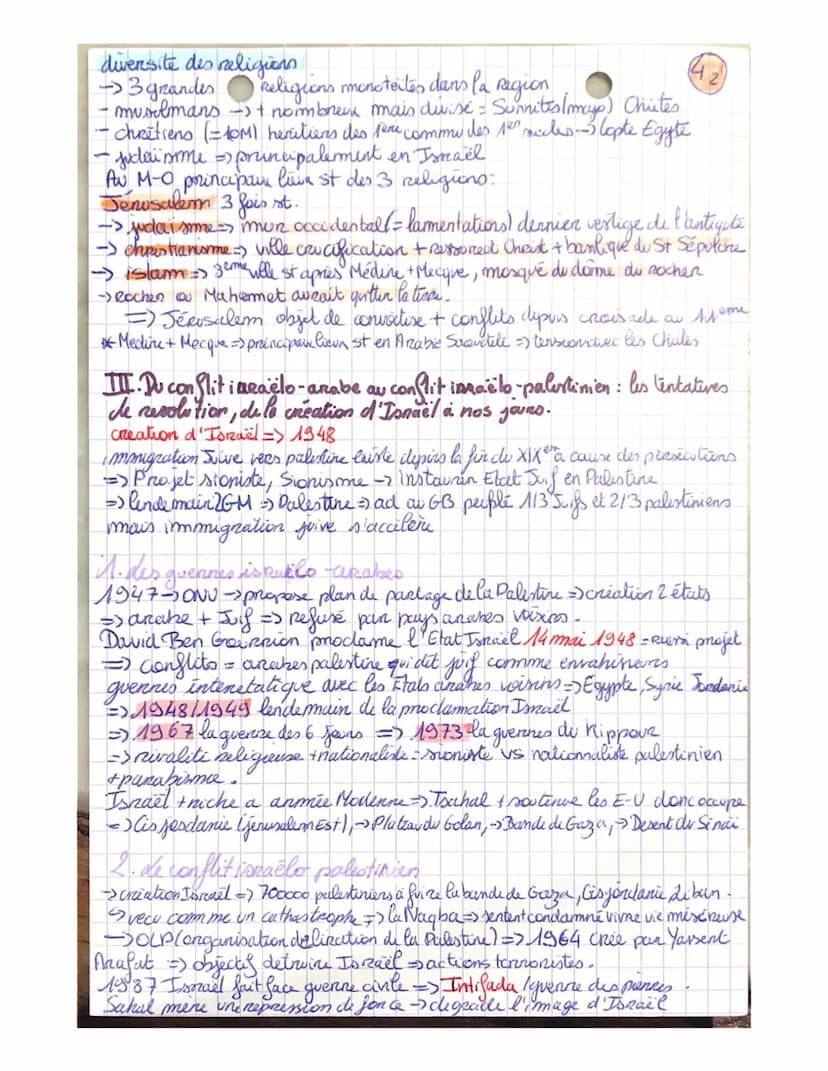 diversité des religions
4 2
-> 3 grandes religions monoteïtes dans la region
- musulmans -> + nombreux mais divisé = Sunnites (majo) Chiites
- chrétiens (=10M) heritiers des 1ere commu des 1er siecles -> Copte Egypte
- judaïsme => principalement en Israël
Au M-O principaux lieux st des 3 religions:
Jérusalem 3 fois st.
-> judaïsme => mur occidental (= lamentations) dernier vestige de l'antiquité
-> christianisme => ville crucification + ressurect Christ + basilique du St Sépulcre
-> islam => 3eme ville st après Médine + Mecque, mosqué du dôme du rocher
-> Rocher ou Mahommet aurait quitter la terre.
=> Jérusalem objet de convoitise + conflits depuis croisade au 11eme
* Medine + Mecque => principaux lieux st en Arabie Saoudite => tension avec les Chiites
III. Du conflit israëlo-arabe au conflit israëlo-palestinien : les tentatives
de resolution, de la création d'Israël à nos jours.
création d'Israël => 1948
immigration Juive vers palestine existe depuis la fin du XIXe à cause des persécutions
=> Projet sioniste, Sionisme -> instaurer Etat Juif en Palestine
=> lendemain 2GM => Palestine => ad au GB peuplé 1/3 Juifs et 2/3 palestiniens
mais immmigration juive s'accelère
1. des guerres israëlo-arabes
1947 -> ONU -> propose plan de partage de la Palestine => création 2 états
=> arabe + Juif => refusé par pays arabes voisins.
David Ben Gourion proclame l'Etat Israël 14 mai 1948 = projet
=> conflits = arabes palestine qui dit juif comme envahisseurs
guerres interetatique avec les Etats arabes voisins => Egypte, Syrie Jordanie
=> 1948/1949 lendemain de la proclamation Israël
=> 1967 la guerre des 6 jours => 1973 la guerres du Kippour
=> rivalité religieuse + nationaliste = sioniste VS nationnaliste palestinien
+ panarabisme.
Israël + riche a armée Moderne => Tsahal + soutenue les E-U donc occupe
=> Cisjordanie (jerusalem Est), -> Plateau du Golan, -> Bande de Gaza, -> Desert du Sinaï
2. Le conflit israëlo palestinien
-> création Israël => 700000 palestiniens à fuire la bande de Gaza, Cisjordanie, Liban.
vecu comme un cathastrophe => la Naqba => sentent condamné vivre vie miséreuse
-> OLP (organisation de liration de la Palestine) => 1964 crée par Yarsent
Arafat => objectif detruire Israël => actions terroristes.
1987 Israël fait face guerre civile => Intifada / guerre des pierres.
Sahal mène une repression de force -> degrade l'image d'Israël